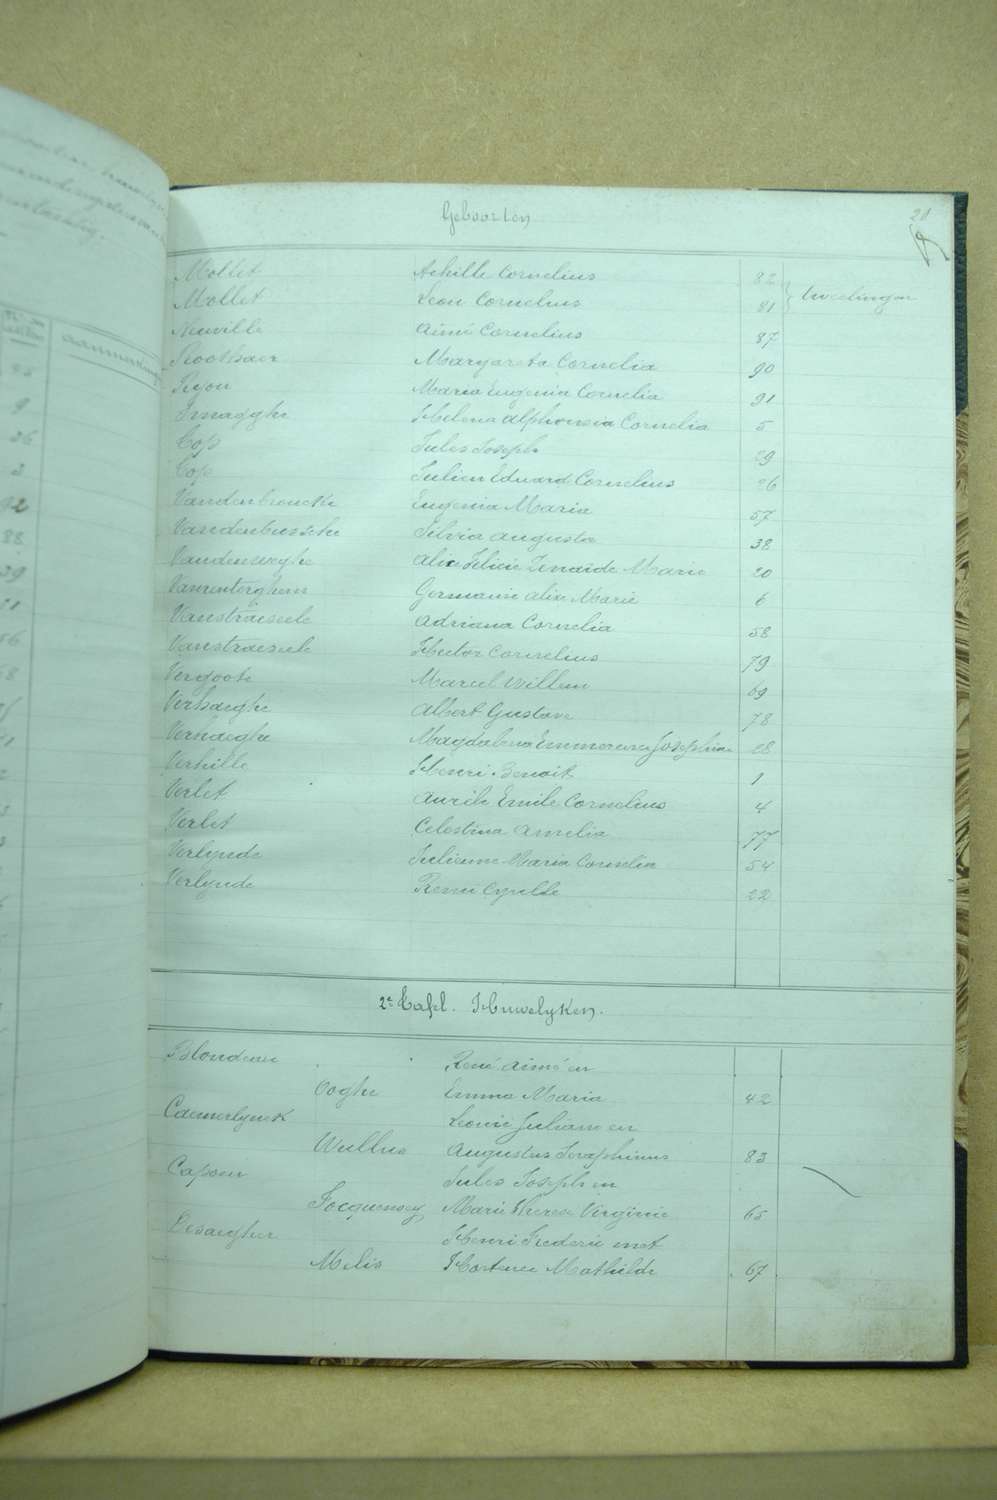 Geboorten
21
Mollet Achille Cornelius 82
Mollet Leon Cornelius 81 tweelingen
Neuville Aimé Cornelius 87
Roothaer Margareta Cornelia 90
Ryon Maria Eugenia Cornelia 91
Smagghe Helena Alphonsia Cornelia 5
Top Jules Joseph 29
Top Julien Eduard Cornelius 26
Vandenbroucke Eugenia Maria 57
Vandenbussche Silvia Augusta 38
Vandeweghe Alix Felicie Zenaïde Marie 20
Vanrenterghem Germanie Alix Marie 6
Vanstraeseele Adriana Cornelia 58
Vanstraeseele Hector Cornelius 79
Vergoote Marcel Willem 69
Verhaeghe Albert Gustave 78
Verhaeghe Magdalena Emmerence Josephine 28
Verhille Henri Benoit 1
Verlet Aurile Emile Cornelius 4
Verlet Celestina Amelia 77
Verlynde Julienne Maria Cornelia 54
Verlynde Remi Cyrille 22
2e Tafel. Huwelyken.
Blondeau René Aimé en
Ooghe Emma Maria 42
Caemerlynck Leonie Juliann en
Wullus Augustus Seraphinus 83
Capoen Jules Joseph en
Focquensey Marie Therese Virginie 65
Desaegher Henri Frederic met
Melis Hortence Mathilde 67
aanmerking
9
26
3
92
88
39